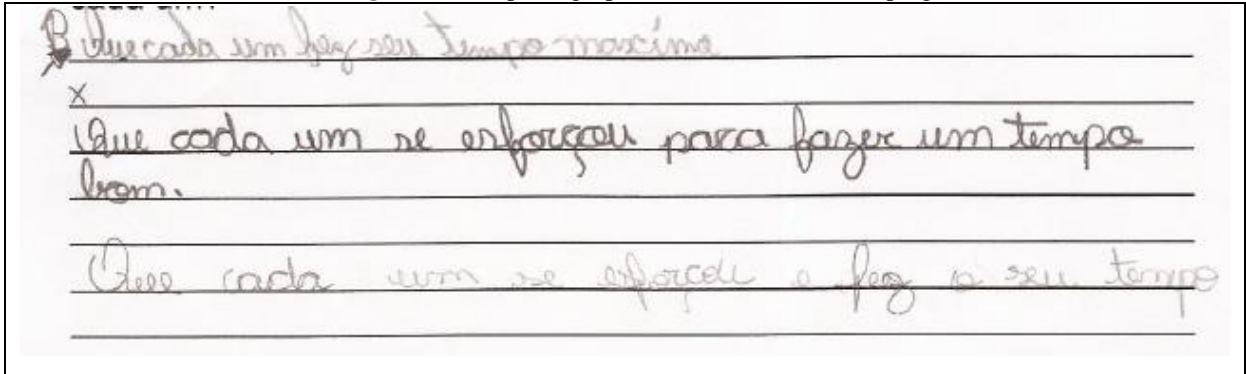 B Que cada um fez seu tempo maxímo
X
Que cada um se esforçou para fazer um tempo
bom.
Que cada um se esforçou e fez o seu tempo